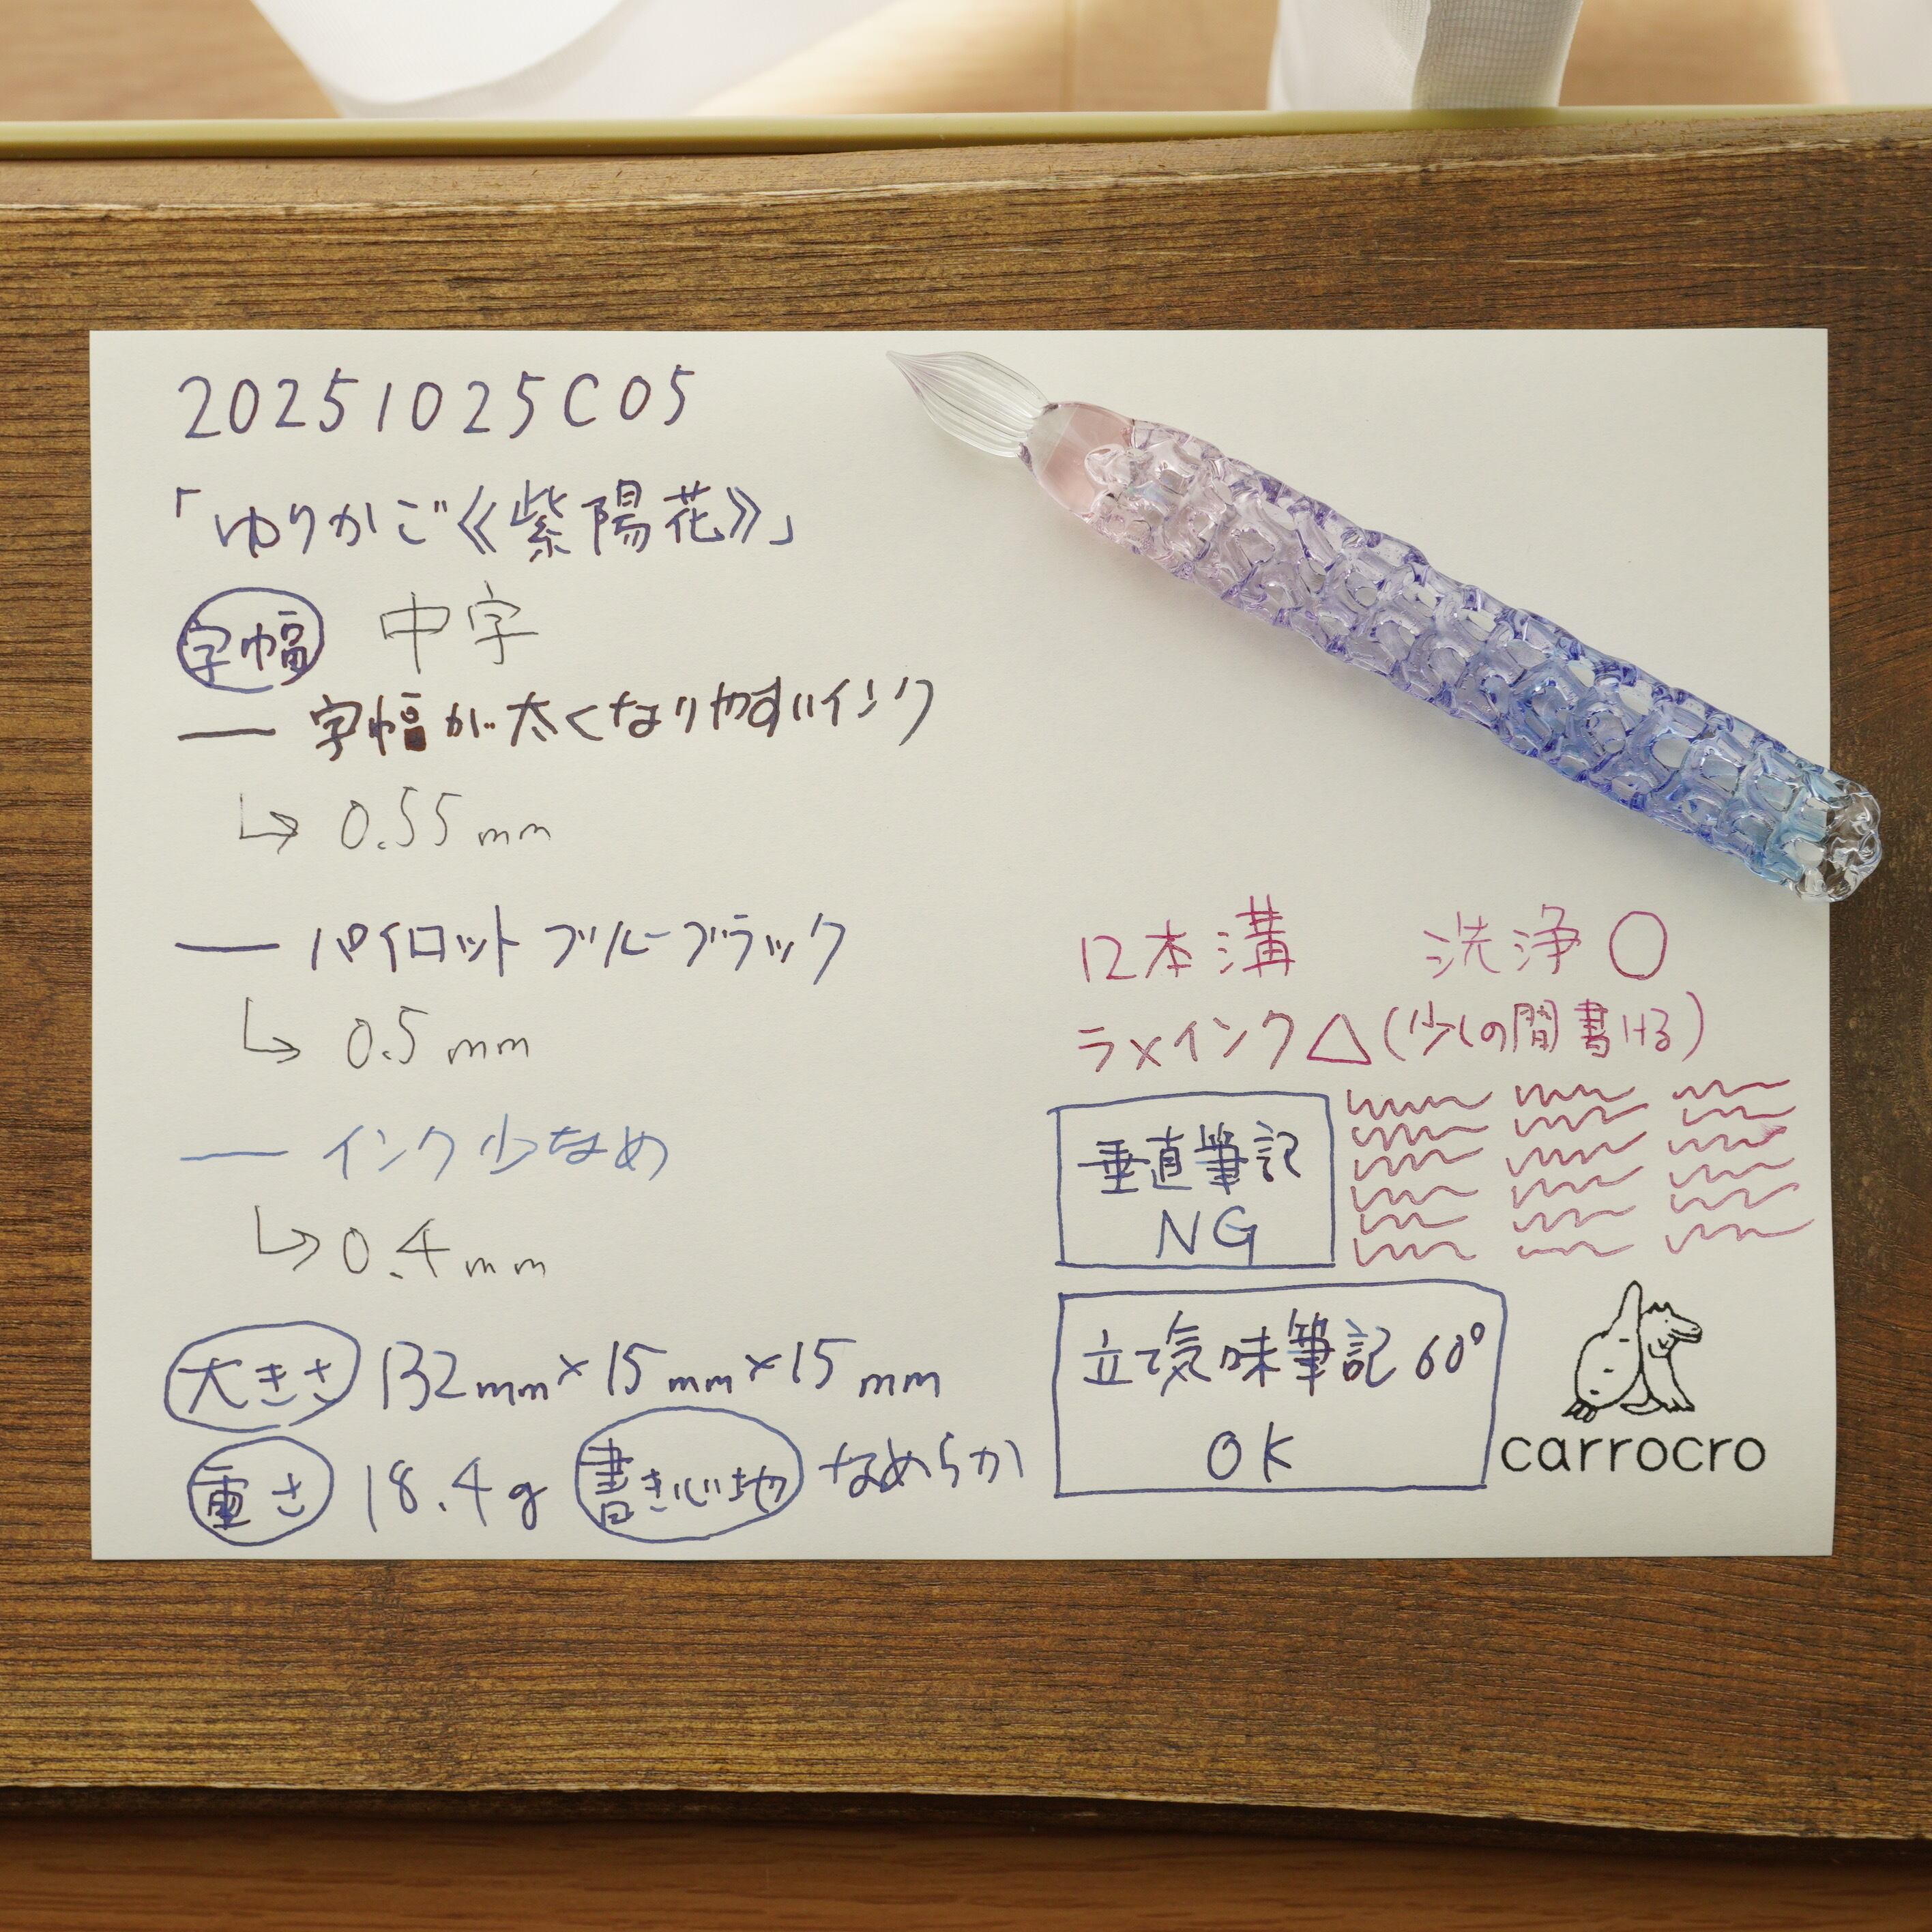 20251025C05
「ゆりかご《紫陽花》」
字幅 中字
字幅が太くなりやすいインク
0.55mm
パイロットブルーブラック
0.5mm
インク少なめ
0.4mm
大きさ 132mm×15mm×15mm
重さ 18.4g 書き心地 なめらか
12本溝 洗浄○
ラメインク△(少しの間書ける)
垂直筆記
NG
立て気味筆記60°
OK
carrocro